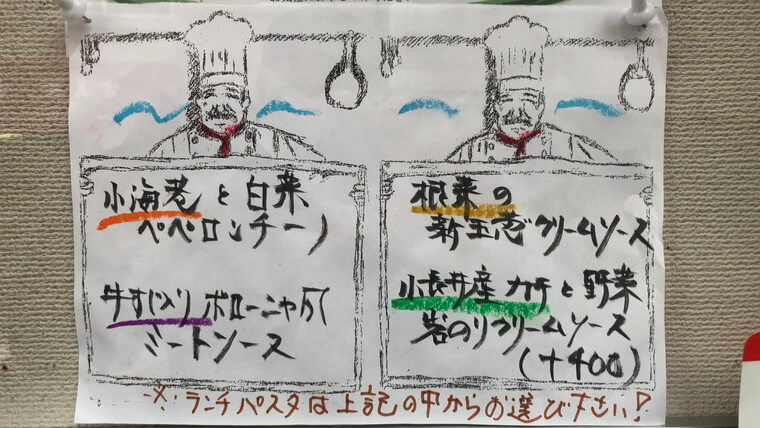 小海老と白菜
ペペロンチーノ
牛すじ入りボローニャ風
ミートソース
根菜の
新玉葱クリームソース
小長井産カキと野菜
岩のりクリームソース
(+400)
※ランチパスタは上記の中からお選び下さい!